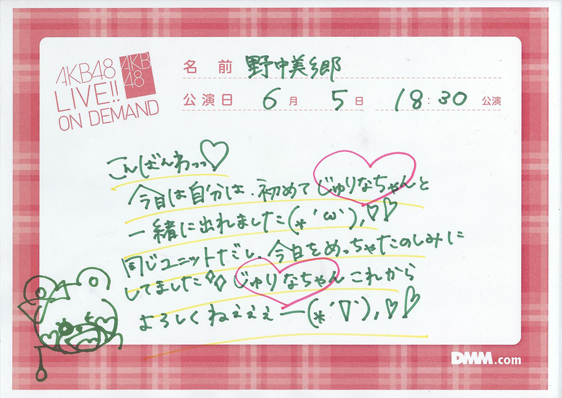 AKB48
LIVE!!
ON DEMAND
AKB
48
名前 野中美郷
公演日 6月 5日 18:30 公演
こんばんわっっ♡
今日は自分は、初めてじゅりなちゃんと
一緒に出れました(*´ω`),♡♡
同じユニットだし、今日をめっちゃたのしみに
してました♡♡じゅりなちゃんこれから
よろしくねぇぇぇー(*´∇`),♡♡
DMM.com